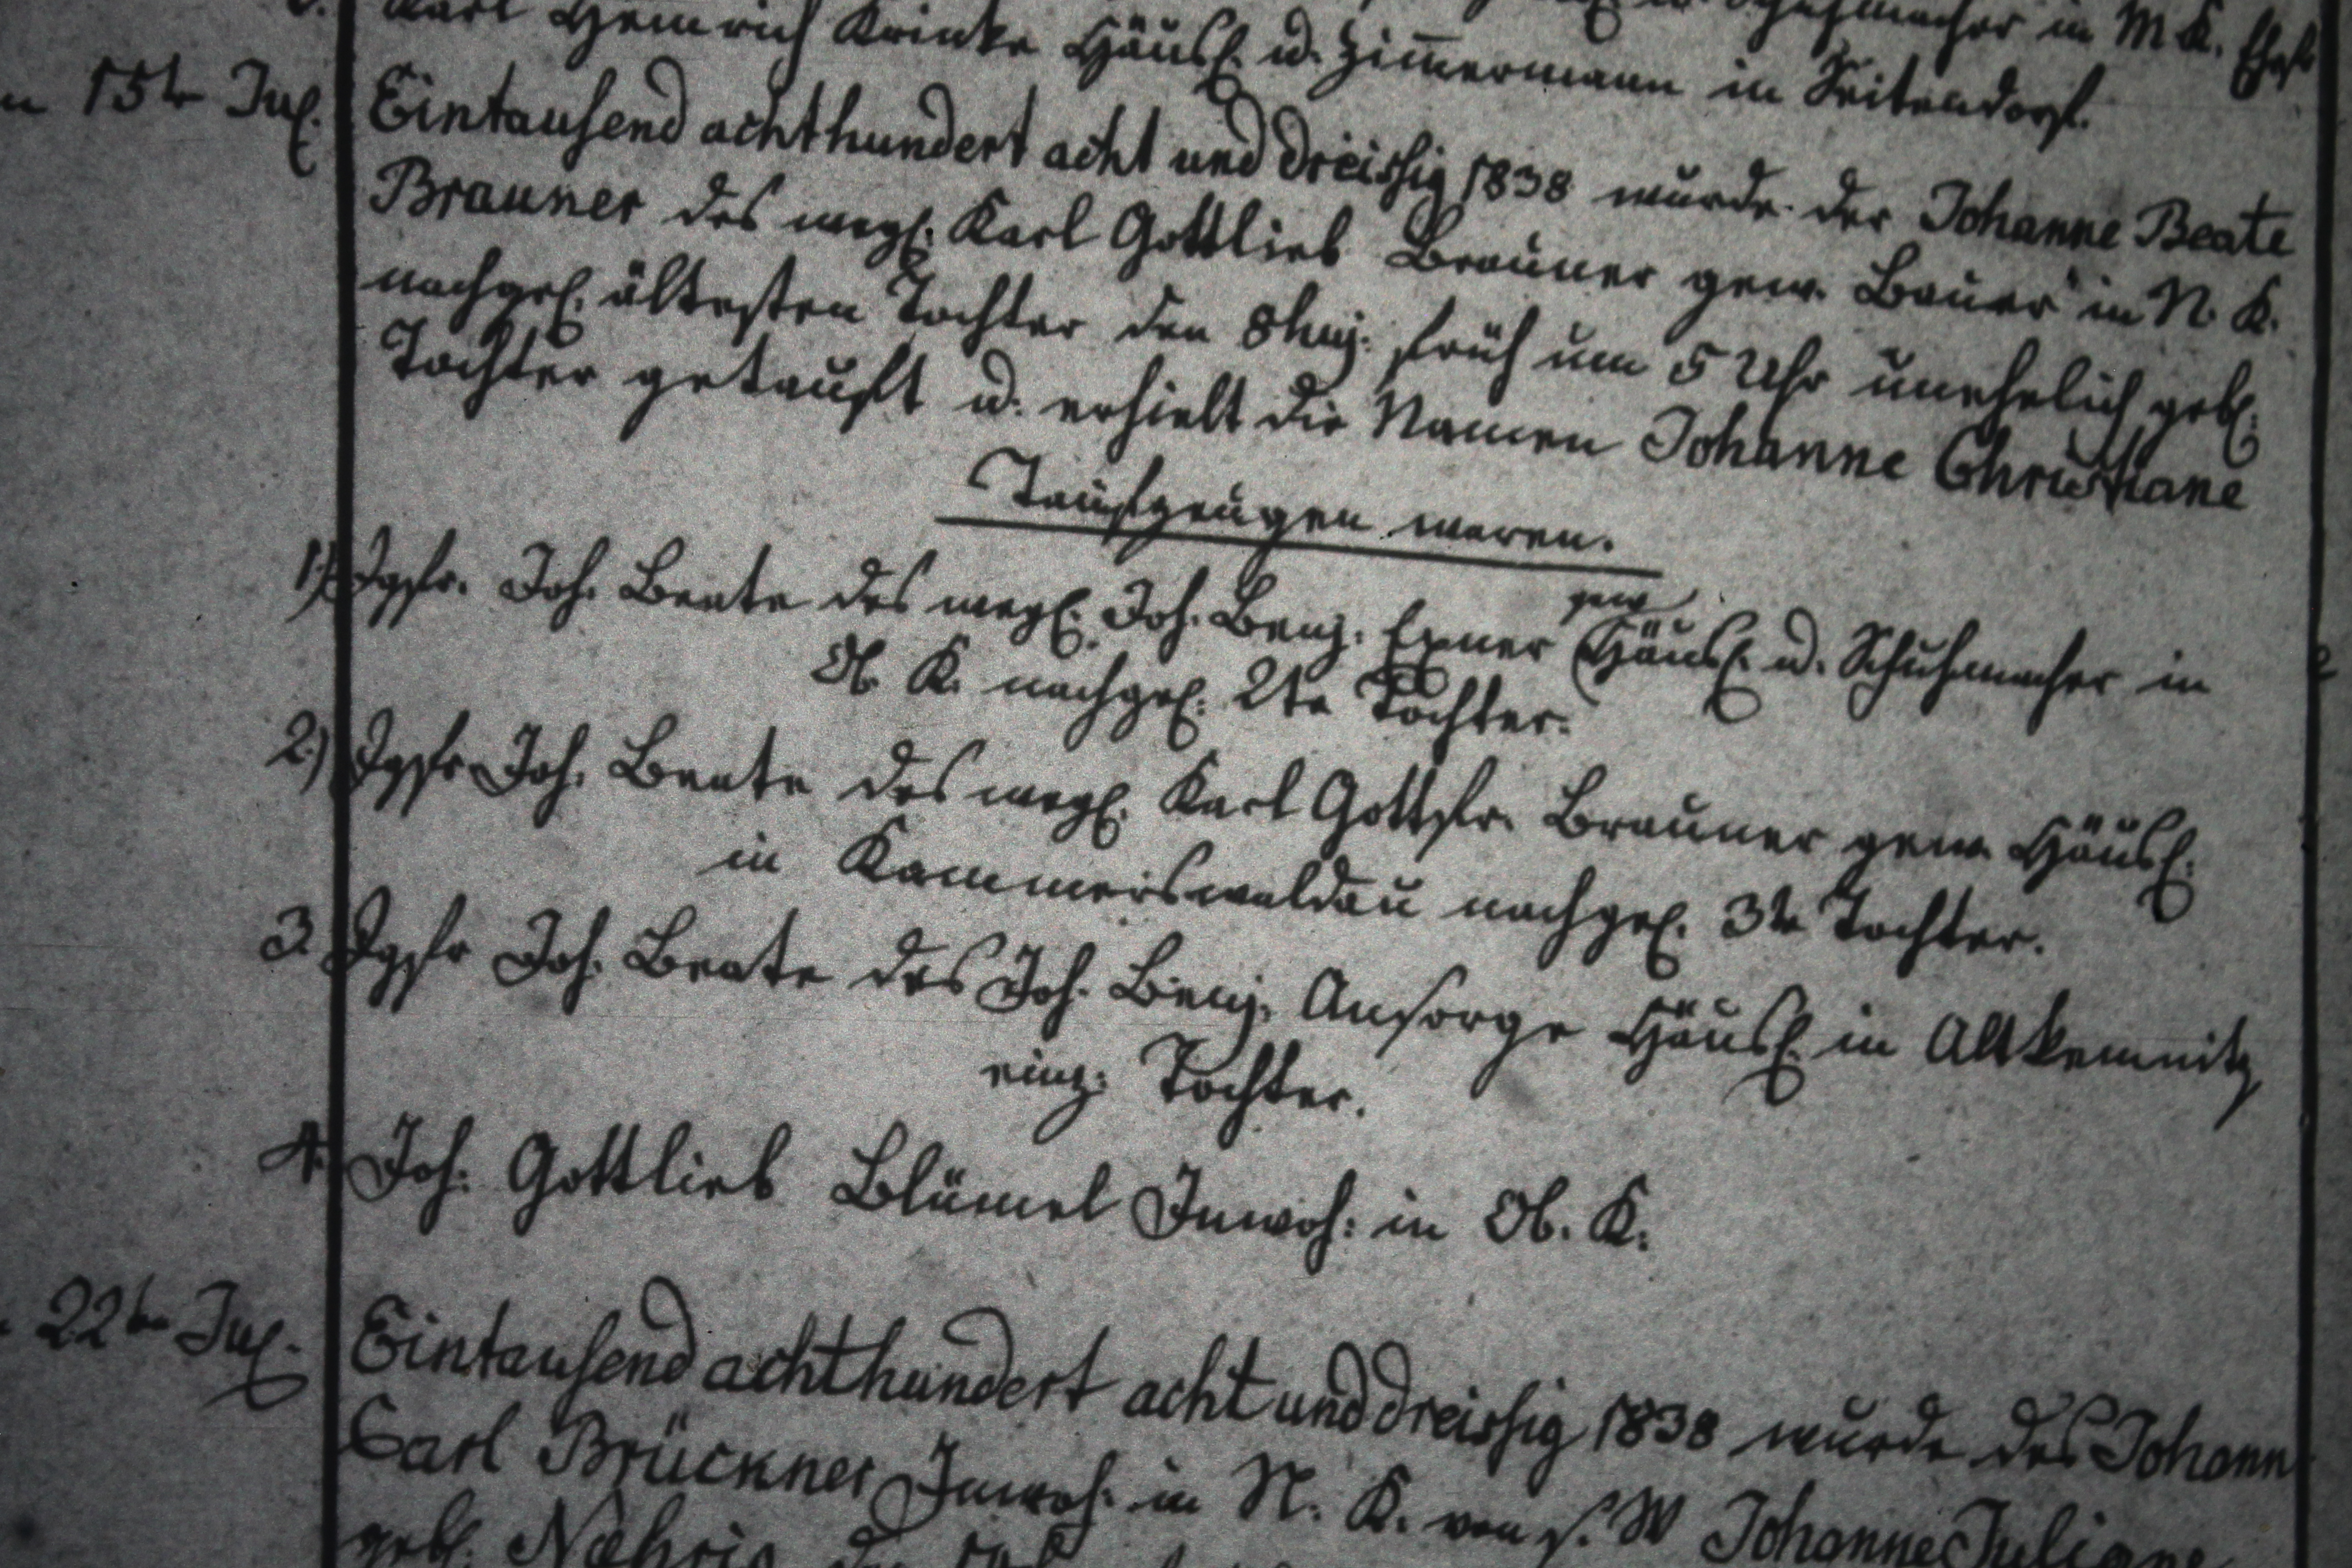 Schuhmacher in M K.
Karl Heinrich Krinke Häusl. u. Zimmermann in Seitendorf.
15te Jul. Eintausend achthundert acht und dreissig 1838 wurde der Johanne Beate
Brauner des wegl. Karl Gottlieb Brauner gew. Bauer in N. K.
nachgel. ältesten Tochter den 8 huj. früh um 5 Uhr unehelich geb.
Tochter getauft u. erhielt die Namen Johanne Christiane
Taufzeugen waren.
1) Jgfr. Joh. Beate des wegl. Joh. Benj. Exner gew. Häusl. u. Schuhmacher in
Ob. K. nachgel. 2te Tochter.
2) Jgfr Joh. Beate des wegl. Karl Gottfr. Brauner gew. Häusl.
in Kammerswaldau nachgel. 3te Tochter.
3. Jgfr Joh. Beate des Joh. Benj. Ansorge Häusl. in Altkemnitz
einz: Tochter.
4. Joh: Gottlieb Blümel Inwoh: in Ob. K.
22te Jul. Eintausend achthundert acht und dreissig 1838 wurde des Johann
Carl Brückner Inwoh. in N. K. von s. W Johanne Juliane
geb.